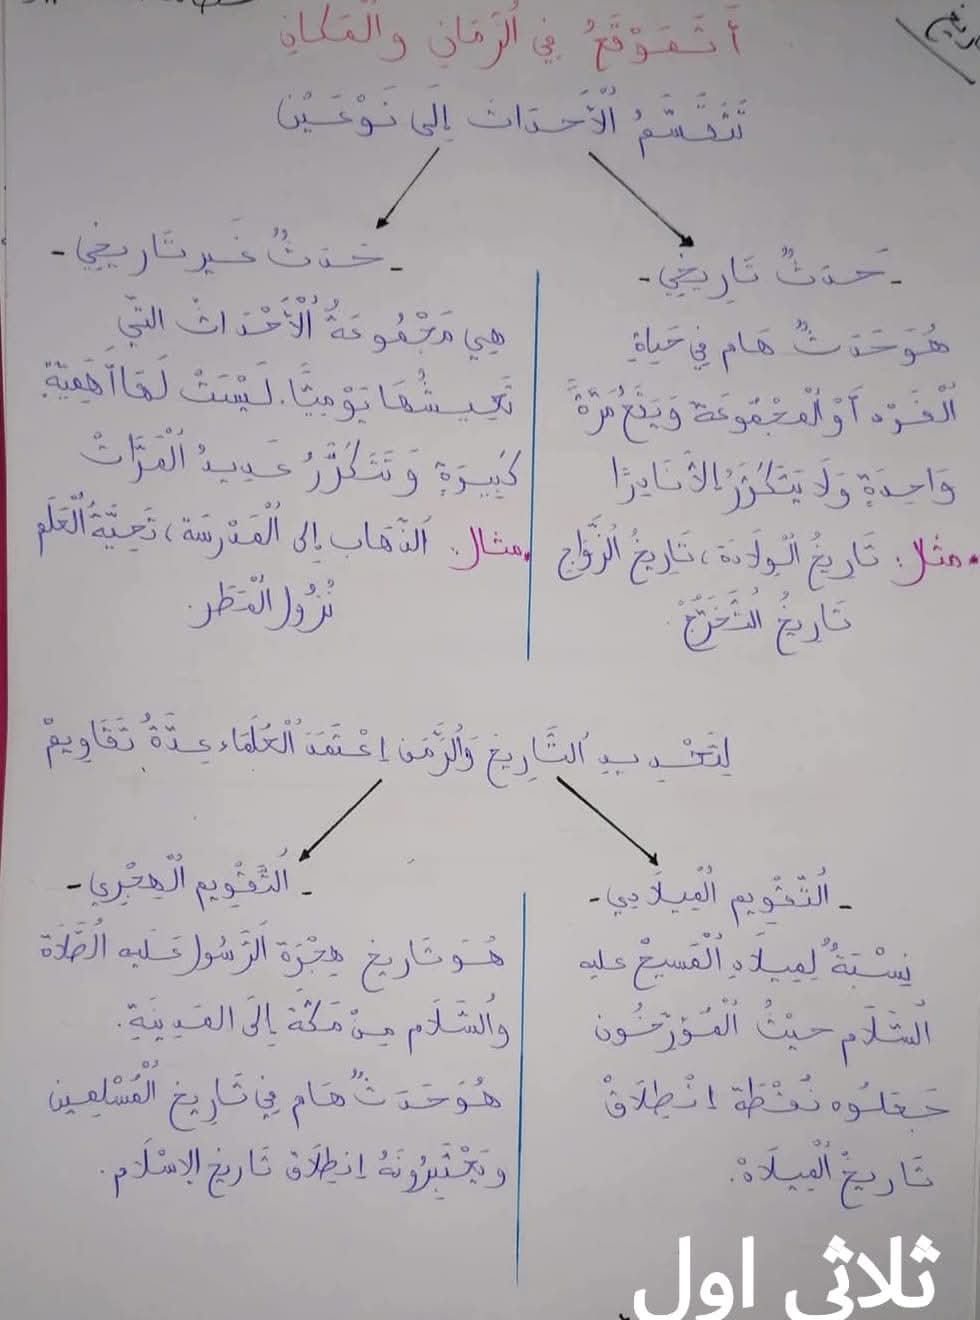 أَتَمَوْقَعُ فِي الزَّمَانِ وَالْمَكَانِ
تَنْقَسِمُ الْأَحْدَاثُ إِلَى نَوْعَيْنِ
- حَدَثٌ تَارِيخِي -
هُوَ حَدَثٌ هَام فِي حَيَاةِ
الْفَرْد أَوْ الْمَجْمُوعَة وَيَقَعُ مَرَّةً
وَاحِدَةٍ وَلَا يَتَكَرَّرُ إِلَّا نَادِرًا
مثل: تَارِيخُ الْوِلَادَة، تَارِيخُ الزَّوَاج
تَارِيخُ التَّخَرُّجْ.
- حَدَثٌ غَير تَارِيخِي -
هِي مَجْمُوعَةُ الْأَحْدَاثْ التِّي
نَعِيشُهَا يَوْمِيًّا. لَيْسَتْ لَهَا أَهَمِيَّة
كَبِيرَةٍ وَتَتَكَرَّرُ عَدِيدُ الْمَرَّاتْ
مثال: الذَّهَاب إلى الْمَدْرَسَة، تَحِيَّةُ الْعَلَم
نُزُول الْمَطَر.
لِتَحْدِيدِ التَّارِيخِ وَالزَّمَن اِعْتَمَدَ الْعُلَمَاء عِدَّةُ تَقَاوِيمْ
- التَّقْوِيم الْمِيلَادِي -
نِسْبَةٌ لِمِيلَادِ الْمَسِيحْ عليه
السَّلَام حيْثُ الْمُؤَرِّخُون
جَعَلُوه نُقْطَة اِنْطِلَاقْ
تَارِيخْ الْمِيلَادْ.
- التَّقْوِيم الْهِجْرِي -
هُوَ تَارِيخ هِجْرَة الرَّسُول عَلَيه الصَّلَاة
وَالسَّلَام مِنْ مَكَّة إِلَى المَدِينَةِ.
هُوَ حَدَثٌ هَام فِي تَارِيخ الْمُسْلِمِين
وَيَعْتَبِرُونَهُ اِنطِلَاق تَارِيخ الإِسْلَام.
ثلاثي اول